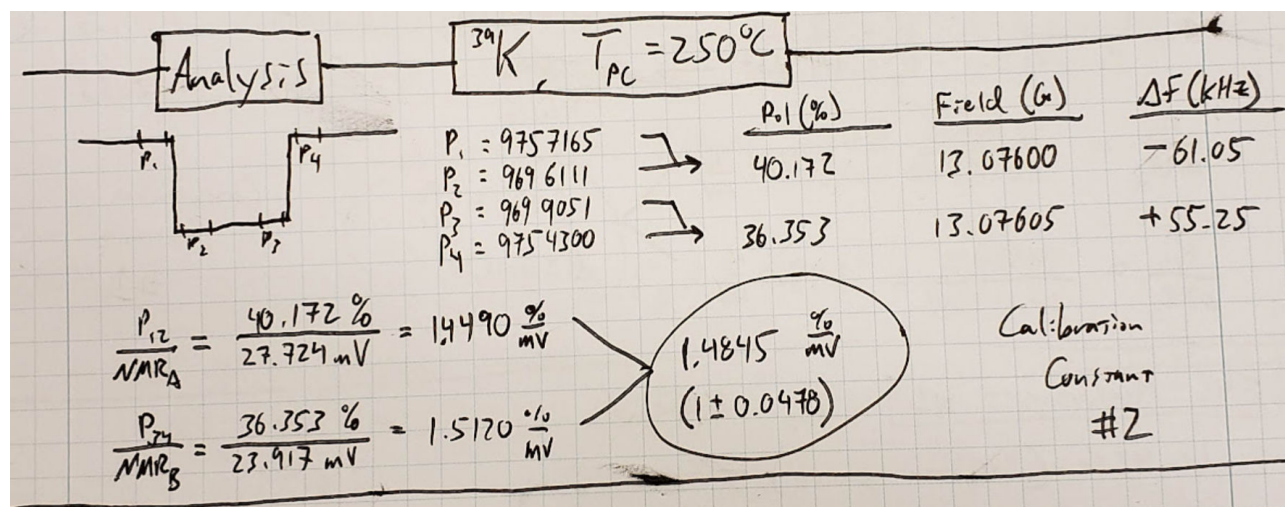 Analysis
³⁹K, T_PC = 250°C
Pol (%) Field (G) Δf (kHz)
P₁ P₄ P₂ P₃
P₁ = 9757165
P₂ = 9696111
P₃ = 9699051
P₄ = 9754300
40.172 13.07600 -61.05
36.353 13.07605 +55.25
P₁₂/NMR_A = 40.172 %/27.724 mV = 1.4490 %/mV
P₃₄/NMR_B = 36.353 %/23.917 mV = 1.5120 %/mV
1.4845 %/mV
(1 ± 0.0478)
Calibration
Constant
#2